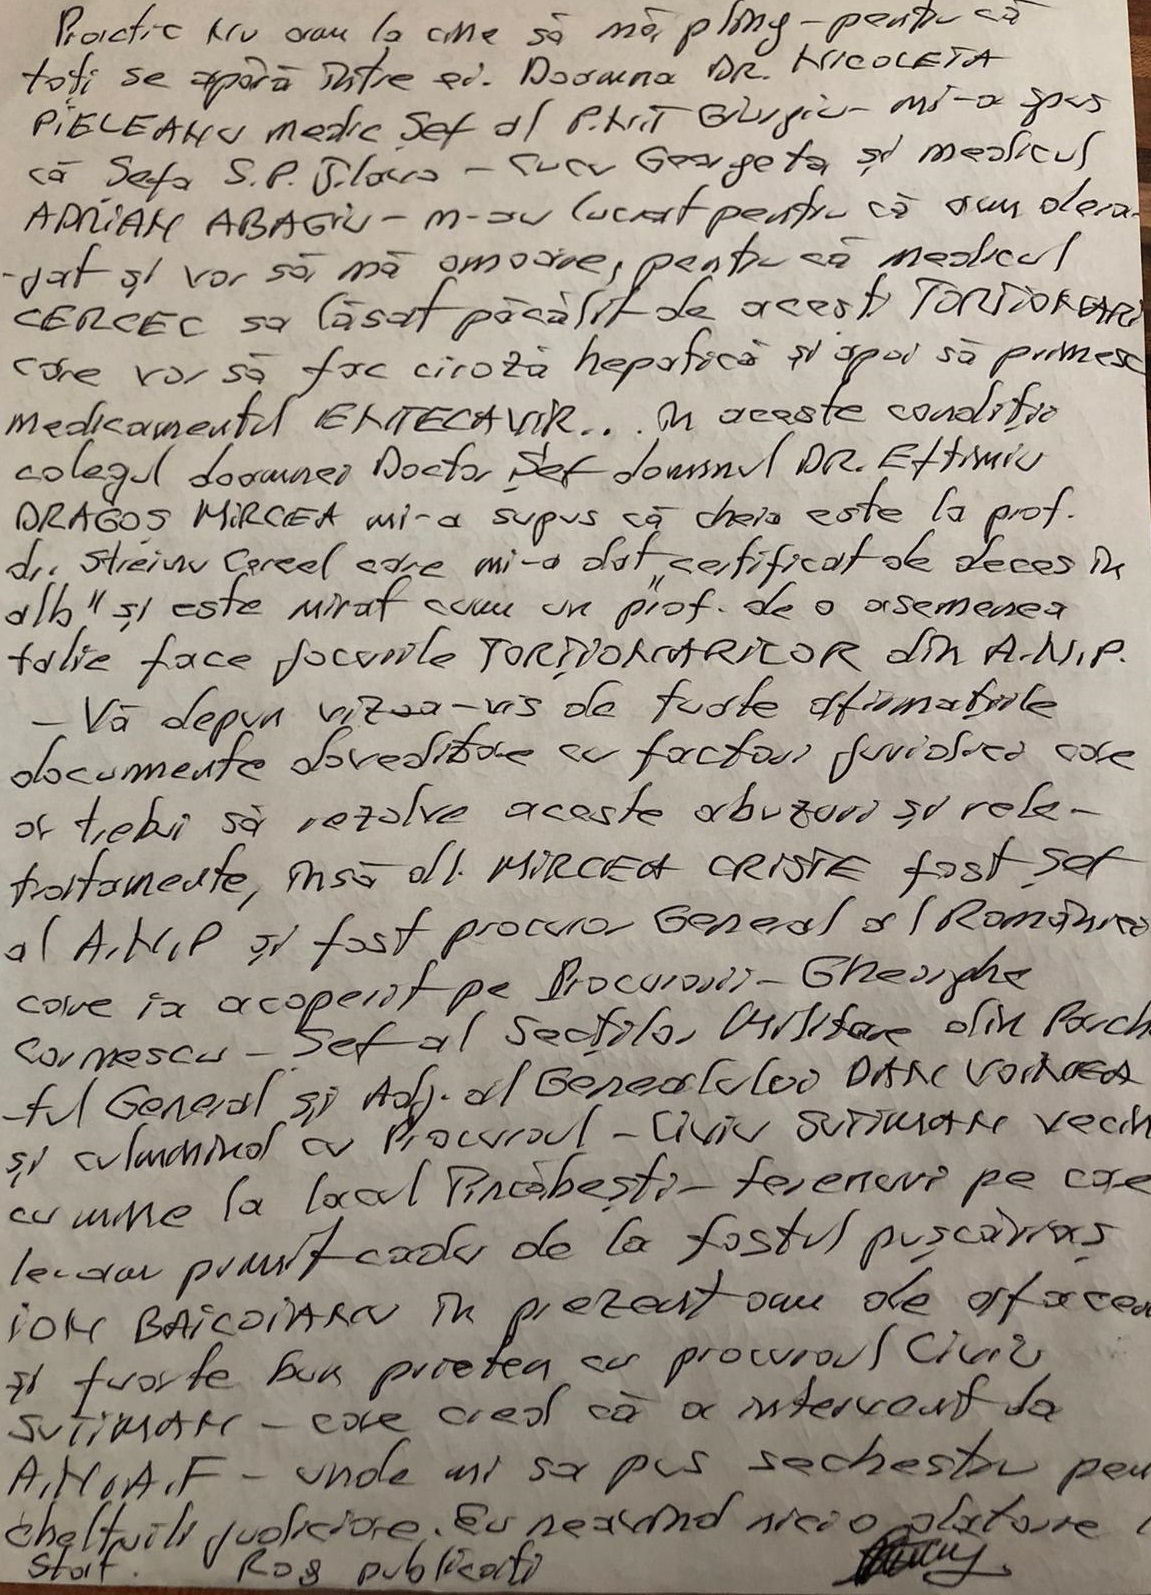 Practic nu am la cine să mă plîng – pentru că
toți se apără între ei. Doamna DR. NICOLETA
PIELEANU medic Șef al P.N.T Giurgiu – mi-a spus
că Șefa S.P. Jilava – Cucu Georgeta și medicul
ADRIAN ABAGIU – m-au lucrat pentru că am deran-
-jat și vor să mă omoare, pentru că medicul
CERCEC sa lăsat păcălit de acesti TORȚIONARI
care vor să fac ciroză hepatică și apoi să primesc
medicamentul ENTECAVIR... în aceste condiții
colegul doamnei Doctor Șef domnul DR. Eftimiu
DRAGOȘ MIRCEA mi-a supus că cheia este la prof.
dr. Streinu Cercel care mi-a dat „certificat de deces în
alb" și este mirat cum un prof. de o asemenea
talie face jocurile TORȚIONARILOR din A.N.P.
– Vă depun viza-vis de toate afirmațiile
documente doveditoare cu factori juridici care
ar trebui să rezolve aceste abuzuri și rele-
tratamente, însă dl. MIRCEA CRISTE fost Șef
al A.N.P și fost procuror General al României
care ia acoperit pe Procurorii – Gheorghe
Cornescu – Șef al Secțiilor Militare din Parch
-tul General și Adj. al Generalului DAN VOINEA
și culminînd cu Procurorul – Civiu SUTIMAN vecin
cu mine la lacul Tîncăbești – terenuri pe care
le-au primit cadou de la fostul pușcăriaș
ION BAICOIANU în prezent om de afaceri
și foarte bun prieten cu procurorul Civiu
SUTIMAN – care cred că a intervenit la
A.N.A.F – unde mi sa pus sechestru pen
cheltuieli judiciare. Eu neavînd nici o datorie l
Stat. Rog publicati